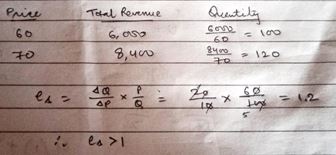 Price Total Revenue Quantity
60 6,000 6000/60 = 100
70 8,400 8400/70 = 120
es = ΔQ/ΔP × P/Q = 20/10 × 60/100 = 1.2
5
∴ es >1